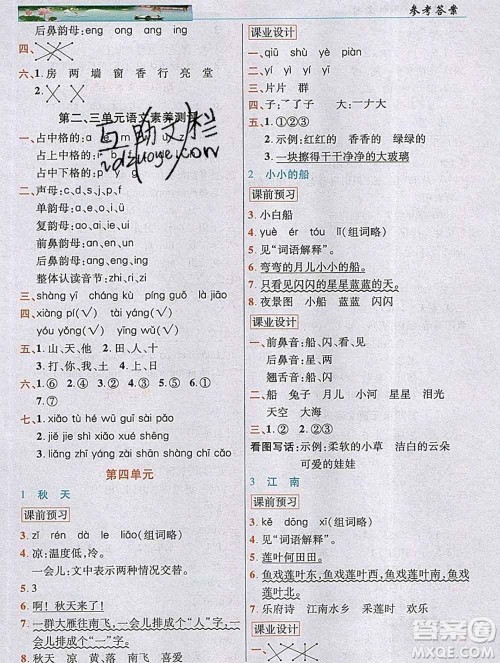 参考答案
后鼻韵母:eng ong ang ing
四、
六、1.房 两 墙 窗 香 行 亮 堂
2.
第二、三单元语文素养测评
互助文栏
idzuoye.com
一、占中格的:
占上中格的:
占中下格的:
二、声母:c,d,s,zh,y
单韵母:a,e,o,ü
复韵母:ai,ao,ui,ie
前鼻韵母:an,en,un,ün
后鼻韵母:ang,eng,ing
整体认读音节:zhi,ri,zi
三、shàng yī cháng kù píng guǒ là jiāo
四、māma(√) tà bù(√) táng guǒ(√)
yóu yǒng(√) yīng wǔ(√)
五、1.山、天、他 2.田、人、十
3.打、你、我、土
六、1.⑥ 2.④ 3.② 4.③ 5.①
6.⑤ 7.⑦
七、1.xiǎo tù hé wū guī sài pǎo
2.jiě jie shì xiǎo xué shēng
3.liǎng zhī yáng zài shān pō shang chī cǎo
第四单元
1 秋天
课前预习
3.zǐ rén dà le liǎo(组词略)
4.凉:温度低,冷。
一会儿:文中表示两种情况交替。
5.3
6.啊!秋天来了!
7.一群大雁往南飞,一会儿排成个“人”字,一会儿排成个“一”字。
8.秋天 凉 黄、落 南飞 天空
课业设计
一、qiū shù yè piàn
二、yí yì yī yí
三、片片 群群
2.示例:红红的 香香的 绿绿的
3.一块擦得干干净净的大玻璃
2 小小的船
课前预习
3.小白船
4.yuè ér tóu lǐ(组词略)
5.见“词语解释”。
6.弯弯的月儿小小的船。
7.只看见闪闪的星星蓝蓝的天。
8.夜景图 小船 蓝蓝 闪闪
课业设计
一、前鼻音:船、看、见
后鼻音:星、两
翘舌音:船、闪
二、船 兔子 月儿 小河 星星 阳光
天空 大海
三、1.①②③ 2.②③
看图写话:示例:柔软的小草 洁白的云朵
可爱的娃娃
3 江南
课前预习
3.kě dōng xī(组词略)
4.见“词语解释”。
5.莲叶何田田。
6.鱼戏莲叶东,鱼戏莲叶西,鱼戏莲叶南,鱼戏莲叶北。
7.乐府诗 江南水乡 采莲时 欢乐
课业设计
答案圈
MXQE.COM